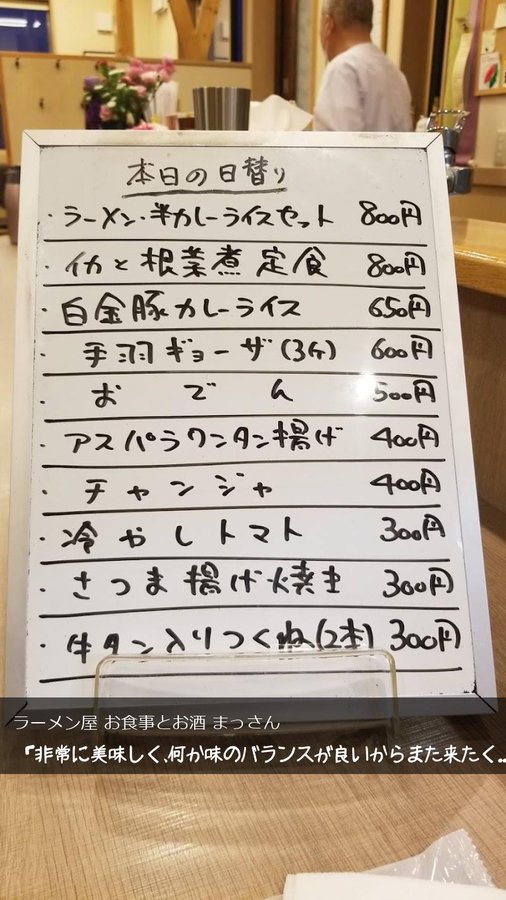 本日の日替り
・ラーメン・半カレーライスセット 800円
・イカと根菜煮定食 800円
・白金豚カレーライス 650円
・手羽ギョーザ(3ケ) 600円
・おでん 500円
・アスパラワンタン揚げ 400円
・チャンジャ 400円
・冷やしトマト 300円
・さつま揚げ焼き 300円
・牛タン入りつくね(2本) 300円
ラーメン屋 お食事とお酒 まっさん
「非常に美味しく、何か味のバランスが良いからまた来たく...